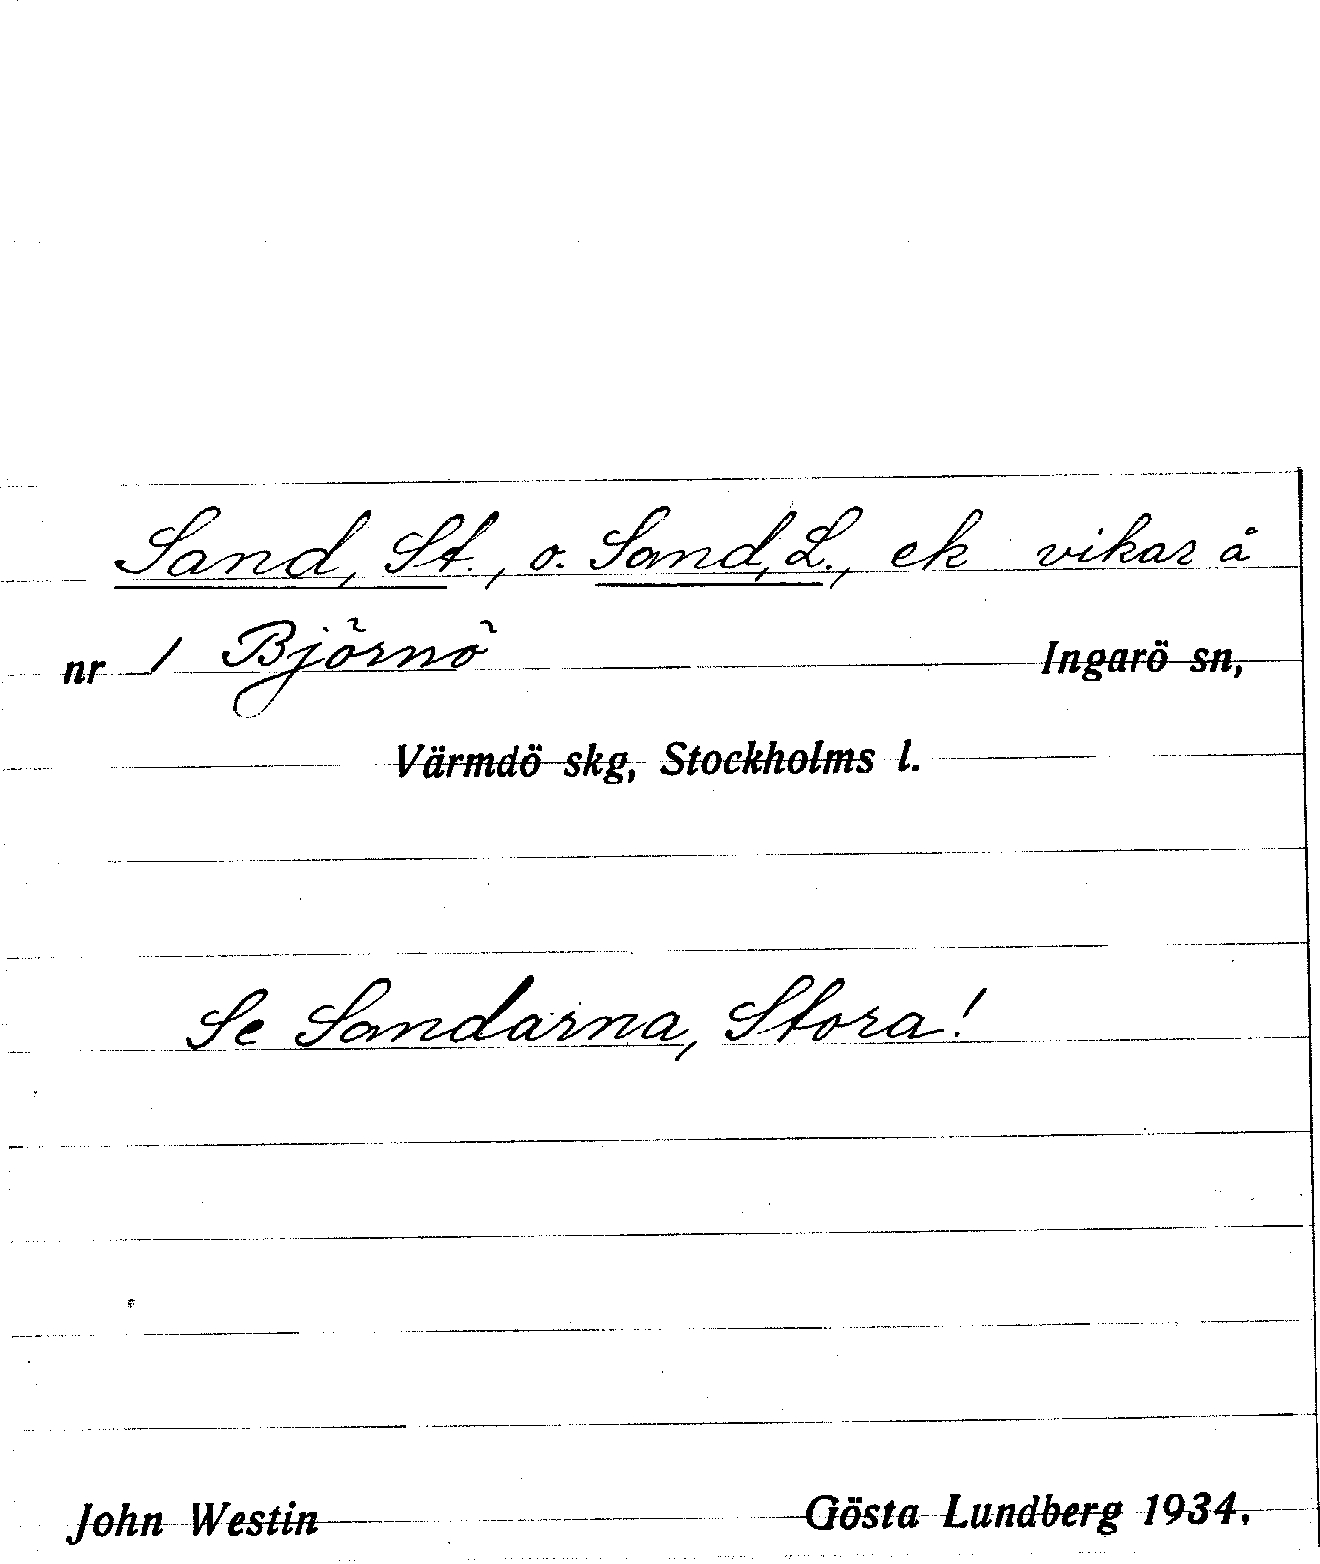 Sand, St., o. Sand, L., ek vikar å
nr 1 Björnö Ingarö sn,
Värmdö skg, Stockholms l.
Se Sandarna, Stora!
John Westin Gösta Lundberg 1934.